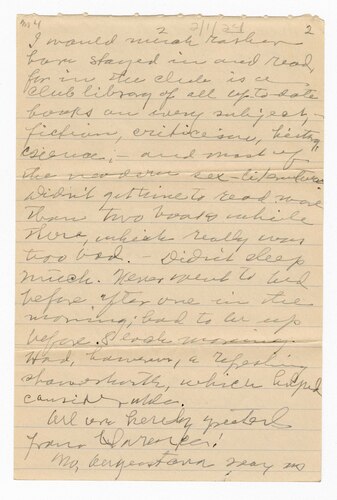 2
2
I would much rather
have stayed in and read,
for in the club is a
club library of all up to date
books on every subject, -
fiction, criticism, history,
science, - and most of
the modern sex-literature
Didn't get time to read more
than two books while
there, which really was
too bad. - Didn't sleep
much. Never went to bed
before after one in the
morning; had to be up
before 8 each morning.
Had, however, a refreshing
shower bath, which helped
considerable.
All are hereby greeted
from Clarence!
No, Augustana may no